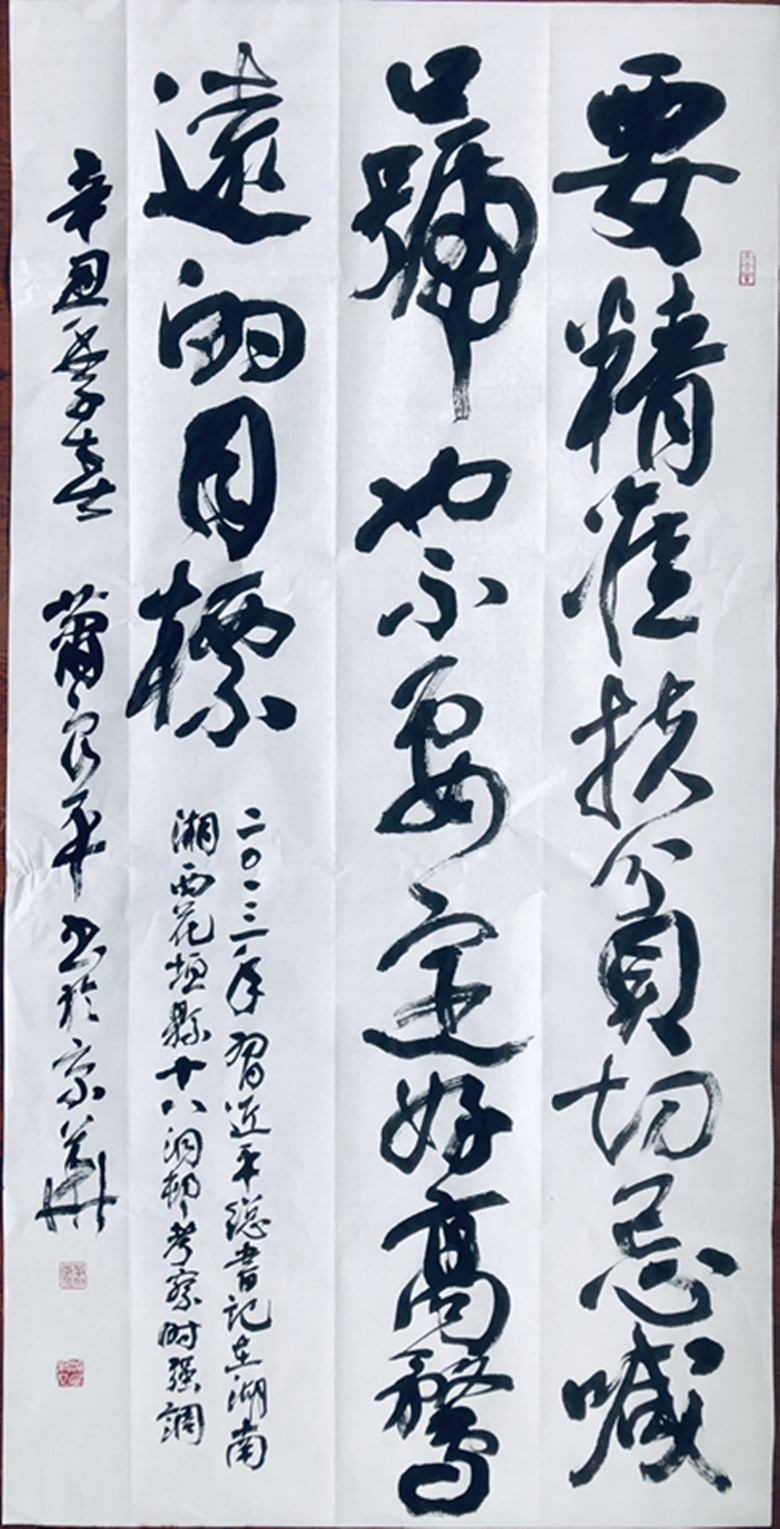 要精准扶贫切忌喊
号也不要定好高骛
远的目标
二〇一三年习近平总书记在湖南
湘西花垣县十八洞村考察时强调
辛丑季春
萧家平书于京华